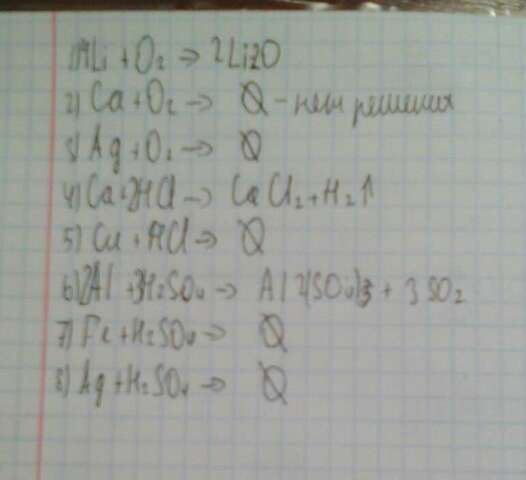 1) 4Li + O2 => 2Li2O
2) Ca + O2 -> Ø - нет решения
3) Ag + O2 -> Ø
4) Ca + 2HCl -> CaCl2 + H2↑
5) Cu + HCl -> Ø
6) 2Al + 3H2SO4 -> Al2(SO4)3 + 3SO2
7) Fe + H2SO4 -> Ø
8) Ag + H2SO4 -> Ø